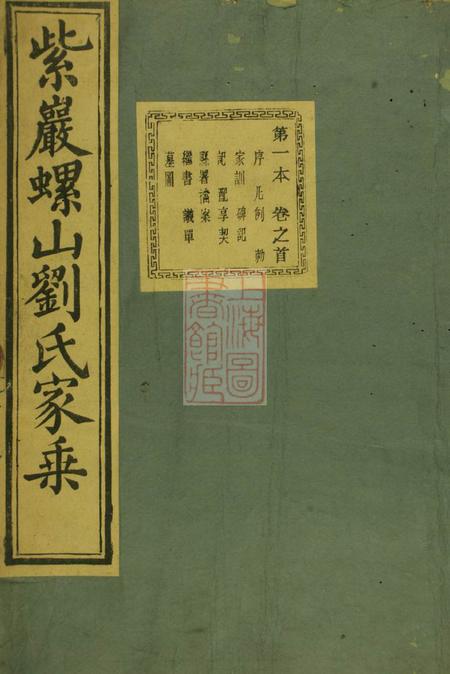 紫巖螺山劉氏家乗
第一本 卷之首
序 凡例 勅
家訓 碑記
記 配享契
縣署檔案
繼書 議單
墓圖
上海圖
書館藏